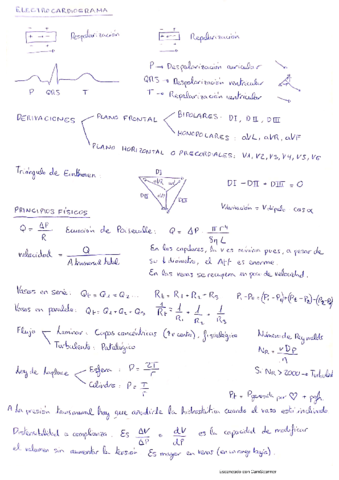 ELECTROCARDIOGRAMA
Despolarización
Repolarización
P → Despolarización auricular
QRS → Despolarización ventricular
T → Repolarización ventricular
P QRS T
DERIVACIONES
PLANO FRONTAL
BIPOLARES: DI, DII, DIII
MONOPOLARES: aVL, aVR, aVF
PLANO HORIZONTAL O PRECORDIALES: V1, V2, V3, V4, V5, V6
Triángulo de Einthoven:
DI
DII
DIII
DI - DII + DIII = 0
cos α
PRINCIPIOS FÍSICOS
Q = ΔP / R
Ecuación de Poiseuille: Q = ΔP π r⁴ / 8η L
velocidad = Q / A transversal total
En los capilares, la v es mínima pues, a pesar de
su diámetro, el ATT es enorme.
En las venas se recupera un poco de velocidad.
Vasos en serie: QT = Q1 = Q2 ... RT = R1 + R2 ...
Vasos en paralelo: QT = Q1 + Q2 + Q3 1/RT = 1/R1 + 1/R2 + 1/R3
Flujo
Laminar: Capas concéntricas, fisiológico
Turbulento: Patológico
Número de Reynolds
NR = v D ρ / η
Si NR > 2000 → Turbulento
Ley de Laplace
Esfera: P = 2T / r
Cilindro: P = T / r
A la presión transmural hay que añadirle la hidrostática cuando el vaso está inclinado
Distensibilidad o compliance: Es ΔV / ΔP = dV / dP es la capacidad de modificar
el volumen sin aumentar la tensión. Es mayor en venas
Escaneado con CamScanner